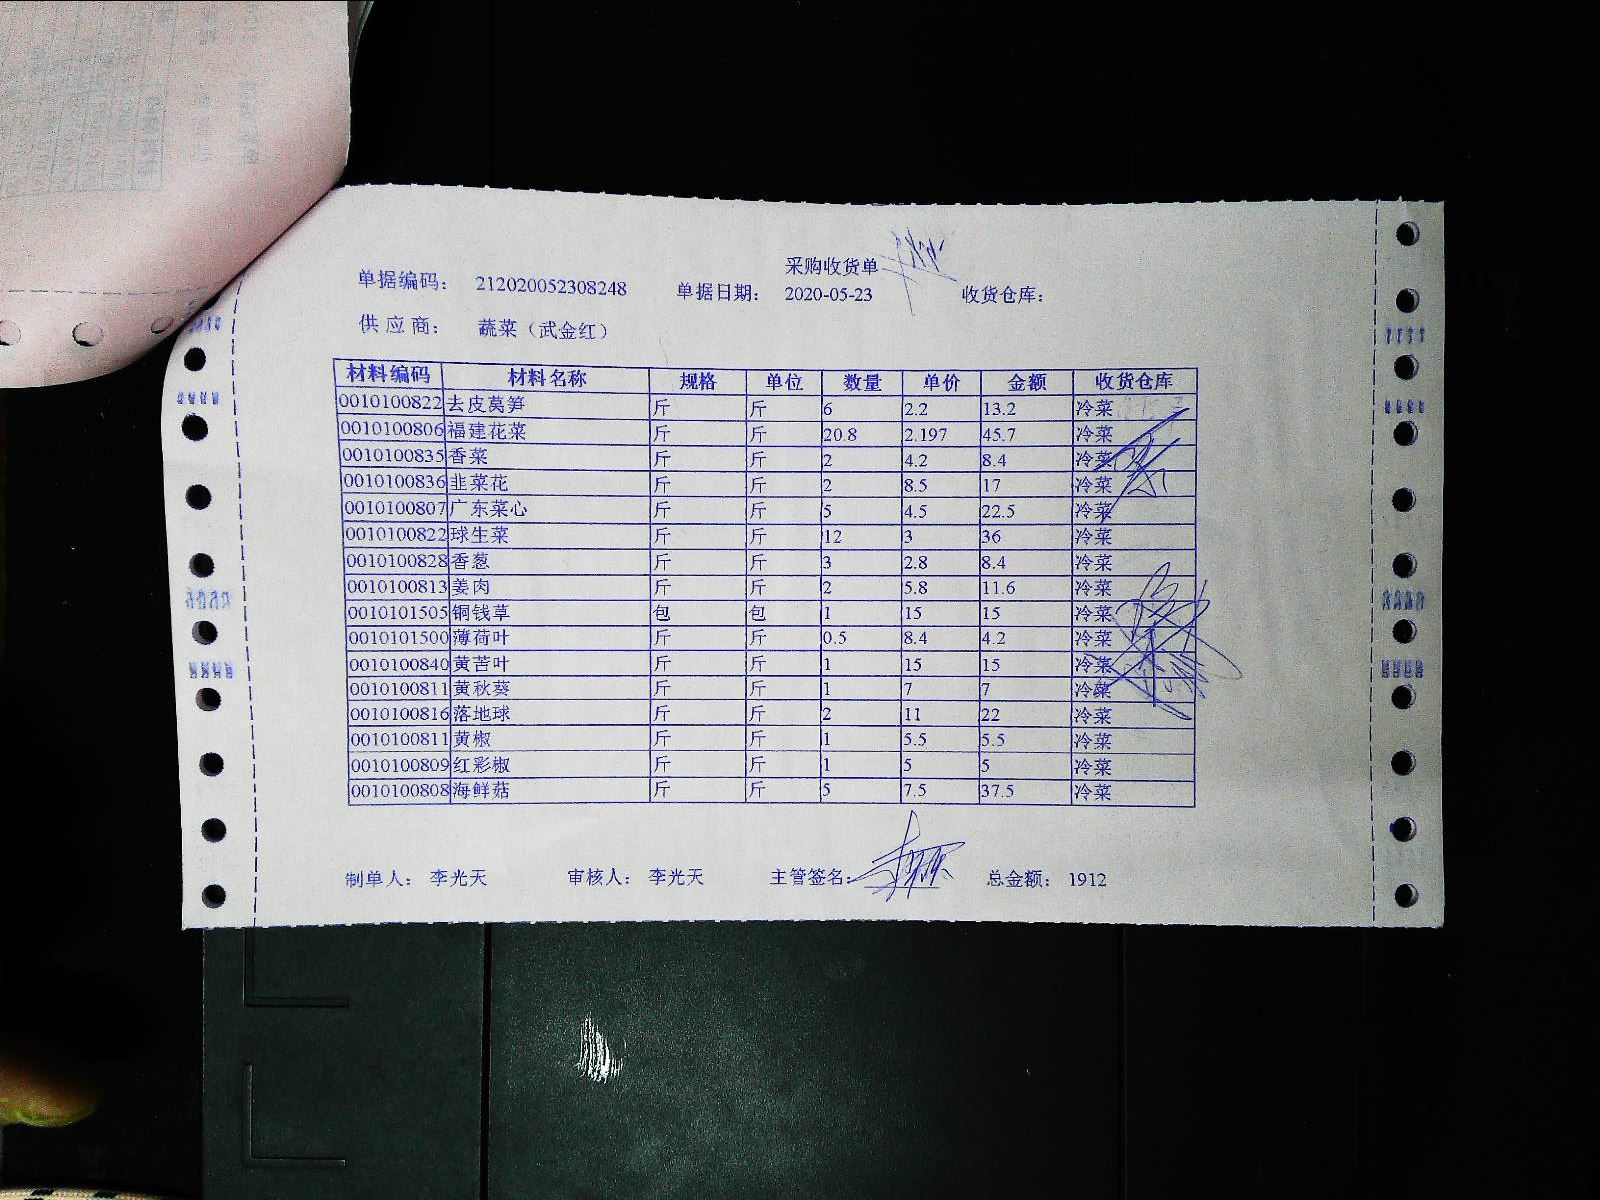 采购收货单
单据编码： 212020052308248 单据日期： 2020-05-23 收货仓库：
供应商： 蔬菜（武金红）
材料编码 材料名称 规格 单位 数量 单价 金额 收货仓库
0010100822 去皮莴笋 斤 斤 6 2.2 13.2 冷菜
0010100806 福建花菜 斤 斤 20.8 2.197 45.7 冷菜
0010100835 香菜 斤 斤 2 4.2 8.4 冷菜
0010100836 韭菜花 斤 斤 2 8.5 17 冷菜
0010100807 广东菜心 斤 斤 5 4.5 22.5 冷菜
0010100822 球生菜 斤 斤 12 3 36 冷菜
0010100828 香葱 斤 斤 3 2.8 8.4 冷菜
0010100813 姜肉 斤 斤 2 5.8 11.6 冷菜
0010101505 铜钱草 包 包 1 15 15 冷菜
0010101500 薄荷叶 斤 斤 0.5 8.4 4.2 冷菜
0010100840 黄苦叶 斤 斤 1 15 15 冷菜
0010100811 黄秋葵 斤 斤 1 7 7 冷菜
0010100816 落地球 斤 斤 2 11 22 冷菜
0010100811 黄椒 斤 斤 1 5.5 5.5 冷菜
0010100809 红彩椒 斤 斤 1 5 5 冷菜
0010100808 海鲜菇 斤 斤 5 7.5 37.5 冷菜
制单人： 李光天 审核人： 李光天 主管签名： 总金额： 1912